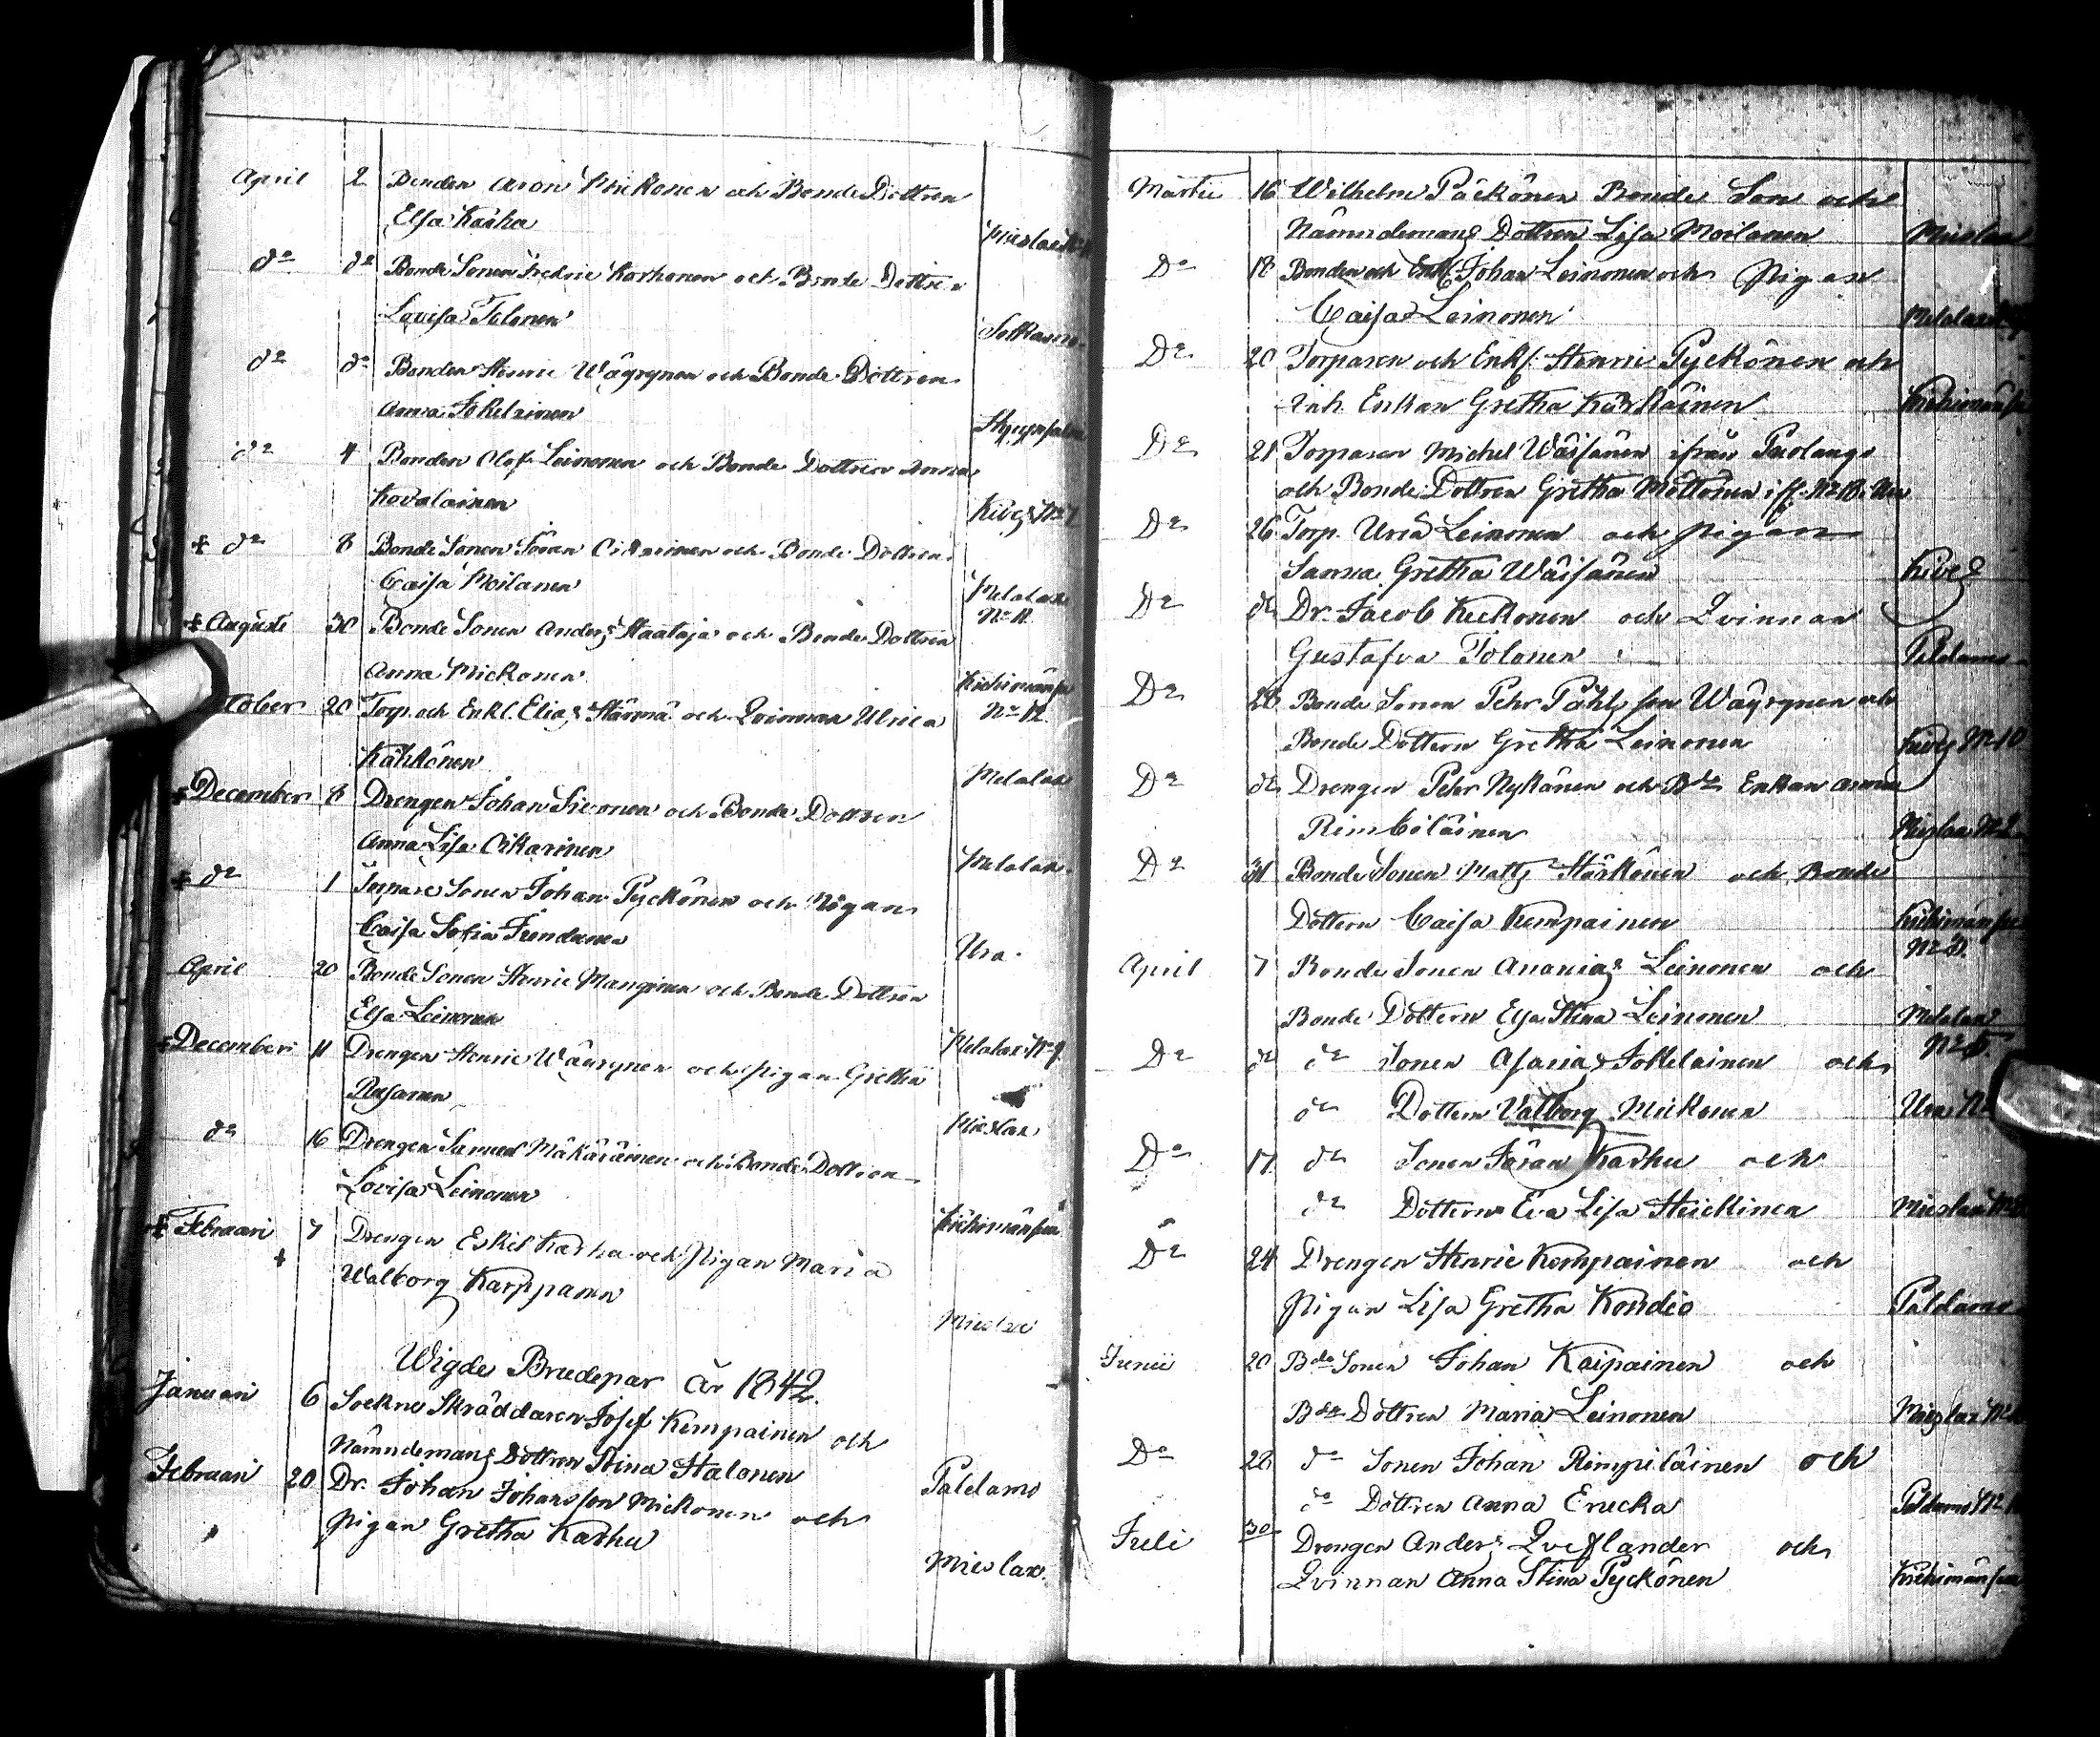 April 2 Bonden Aron Mickonen och Bonde Dottren
Elsa Karhu Mieslax N:o
d:o d:o Bonde Sonen Fredric Korhonen och Bonde Dottren
Lovisa Tolonen Sotkamo
d:o d:o Bonden Henric Wäyrynen och Bonde Dottren
Anna Jokelainen Hyrynsalmi
d:o 4 Bonden Olof Leinonen och Bonde Dottren Anna
Kovalainen Kives N:o
+ d:o 8 Bonde Sonen Göran Oikarinen och Bonde Dottren
Caisa Moilanen Melalax
N:o 11
+ Augusti 30 Bonde Sonen Anders Haataja och Bonde Dottren
Anna Mickonen Kiehimänsu
N:o 12
tober 20 Torp. och Enkl. Elias Härmä och Qvinnan Ulrica
Kähkönen Melalax
+ December 8 Drengen Johan Sirvonen och Bonde Dottren
Anna Lisa Oikarinen Melalax
+ d:o 1 Torpare Sonen Johan Pyckönen och Pigan
Caisa Sofia Ura
April 20 Bonde Sonen Henric Manginen och Bonde Dottren
Elsa Leinonen Melalax N:o 9
+ December 11 Drengen Henric Wäyrynen och Pigan Gretha
Mieslax
d:o 16 Drengen Samuel Mäkäräinen och Bonde Dottren
Lovisa Leinonen Kiehimänsuu
+ Februari 7 Drengen Eskil Karhu och Pigan Maria
+ Walborg Karppanen
Mieslax
Wigde Brudepar År 1842.
Januari 6 Sockne Skräddaren Josef Kempainen och
Nämndemans Dottren Stina Halonen Paldamo
Februari 20 Dr. Johan Johansson Mickonen och
Pigan Gretha Karhu Mieslax
Martii 16 Wilhelm Päckönen Bonde Son och
Nämndemans Dottren Lisa Moilanen Mieslax
D:o 18 Bonden och Enkl. Johan Leinonen och Pigan
Caisa Leinonen Melalax
D:o 20 Torparen och Enkl. Henric Pyckönen och
Inh. Enkan Gretha Kärkäinen Kiehimänsu
D:o 21 Torparen Michel Wäisänen ifrån Puolango
och Bonde Dottren Gretha Möttönen
D:o 26 Torp. Leinonen och Pigan
Sanna Gretha Wäisänen Kives
D:o d:o Dr. Jacob Keckonen och Qvinnan
Gustafva Tolonen Paldamo
D:o 28 Bonde Sonen Pehr Påhlsson Wäyrynen och
Bonde Dottern Gretha Leinonen Kives N:o 10
D:o d:o Drengen Pehr Nykänen och B:de Enkan Anna
Rimbiläinen Mieslax N:o 2
D:o 31 Bonde Sonen Matts Härkönen och Bonde
Dottern Caisa Kempainen Kiehimänsu
N:o 3.
April 7 Bonde Sonen Ananias Leinonen och
Bonde Dottern Elsa Stina Leinonen Melalax
N:o 5.
D:o d:o d:o Sonen Asarias Jokelainen och
d:o Dottern Valborg Mickonen Ura N:o
D:o 17 d:o Sonen Göran Karhu och
d:o Dottern Eva Lisa Heickinen Mieslax N:o
D:o 24 Drengen Henric Kempainen och
Pigan Lisa Gretha Kondio Paldamo
Junii 20 B:de Sonen Johan Kaipainen och
B:de Dottren Maria Leinonen Mieslax N:o
D:o 28 d:o Sonen Johan Rimpiläinen och
d:o Dottren Anna Ericka Paldamo N:o
Juli 30 Drengen Anders Qveflander och
Qvinnan Anna Stina Pyckönen Kiehimänsuu